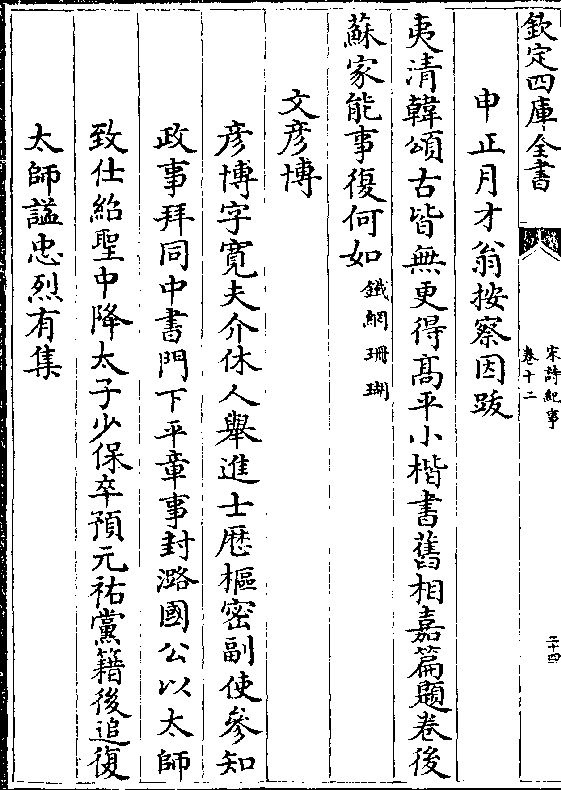 欽定四庫全書
宋詩紀事
卷十二
二十四
申正月才翁按察因跋
夷清韓頌古皆無更得髙平小楷書舊相嘉篇題卷後
蘇家能事復何如鐵網珊瑚
文彦博
彦博字寛夫介休人舉進士歴樞密副使參知
政事拜同中書門下平章事封潞國公以太師
致仕紹聖中降太子少保卒預元祐黨籍後追復
太師諡忠烈有集